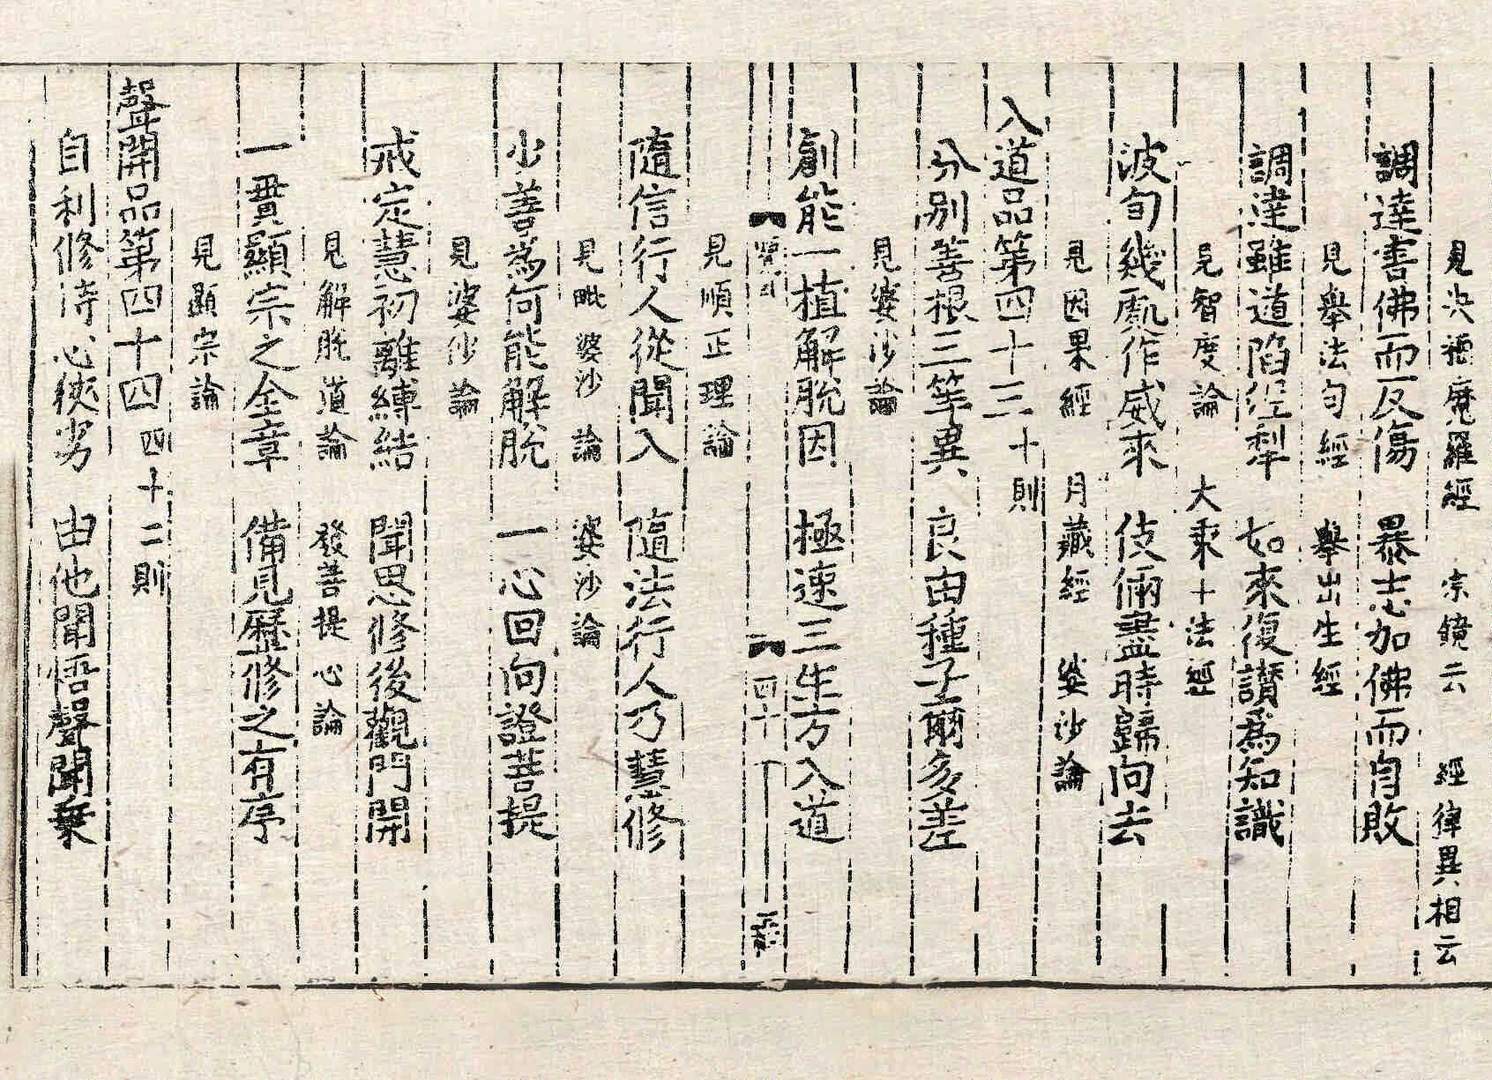 見央掘魔羅經　宗鏡云　經律異相云
調達害佛而反傷　暴志加佛而自敗
見舉法句經　舉出生經
調達雖道陷泥犁　如來復讃爲知識
見智度論　大乘十法經
波旬幾囘作威來　伎倆盡時歸向去
見因果經　月藏經　婆沙論
入道品第四十三　十則
分別善根三等異　良由種子爾多差
見婆沙論
創能一植解脫因　極速三生方入道
四十
見順正理論
隨信行人從聞入　隨法行人乃慧修
見毗婆沙論　婆沙論
少善爲何能解脫　一心回向證菩提
見婆沙論
戒定慧初離縛結　聞思修後觀門開
見解脫道論　發菩提心論
一貫顯宗之金章　備見歷修之有序
見顯宗論
聲聞品第四十四　四十二則
自利修持心狹劣　由他聞悟聲聞乗